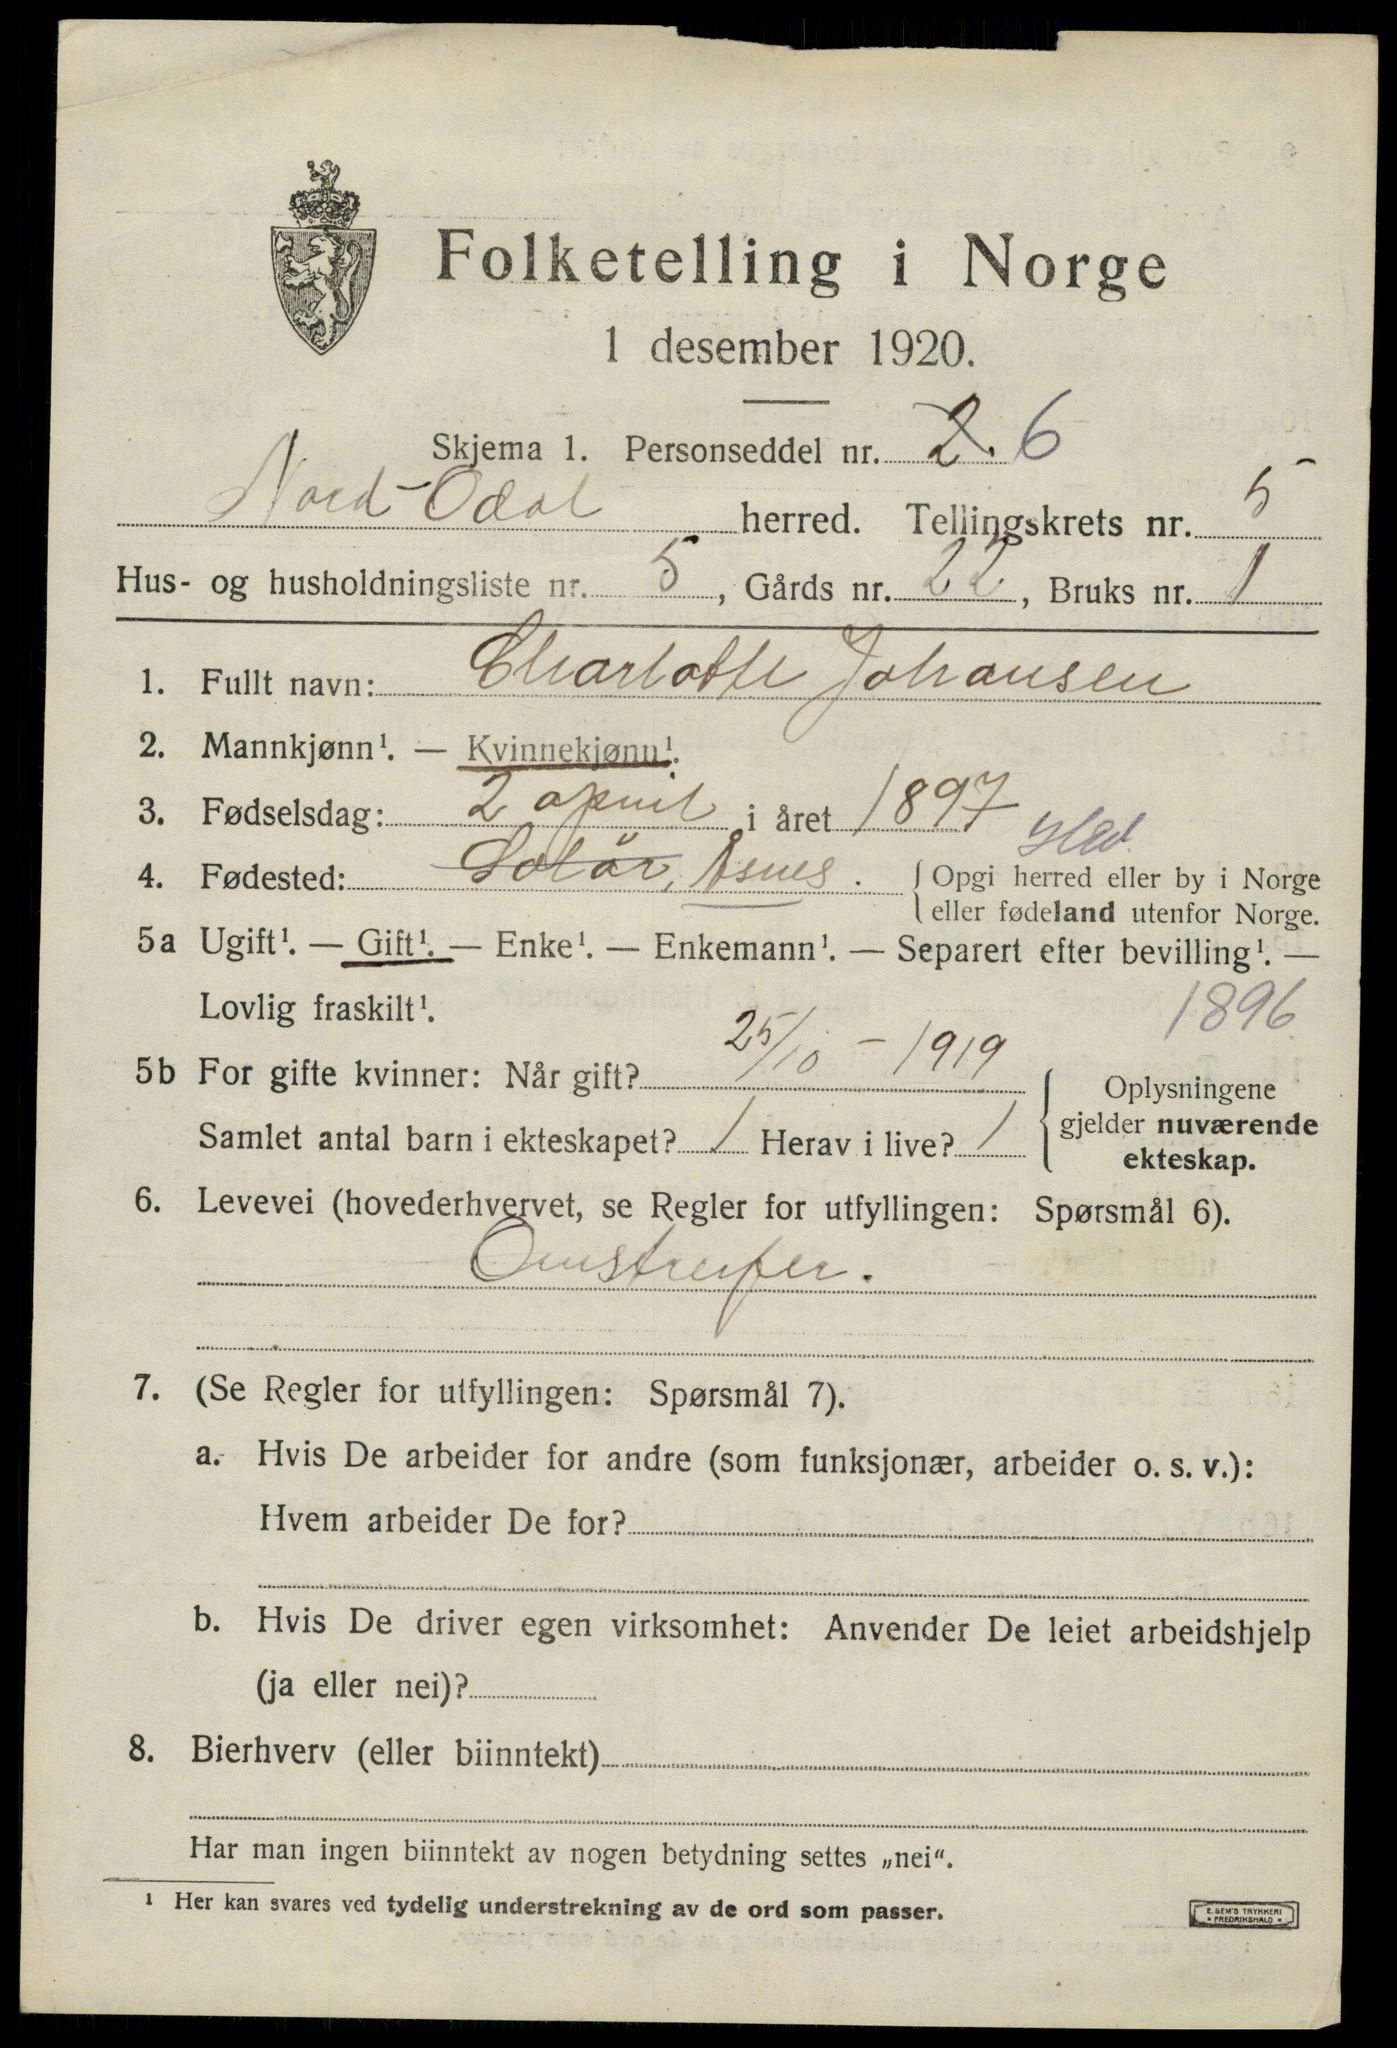 Folketelling i Norge
1 desember 1920.
Skjema 1. Personseddel nr. 2. 6
Nord-Odal herred. Tellingskrets nr. 5
Hus- og husholdningsliste nr. 5, Gårds nr. 22, Bruks nr. 1
1. Fullt navn: Charlotte Johansen
2. Mannkjønn¹. — Kvinnekjønn¹.
3. Fødselsdag: 2 april i året 1897
Hed.
4. Fødested: Solör, Åsnes. Opgi herred eller by i Norge
eller fødeland utenfor Norge.
5a Ugift¹. — Gift¹. — Enke¹. — Enkemann¹. — Separert efter bevilling¹. —
Lovlig fraskilt¹. 1896
5b For gifte kvinner: Når gift? 25/10 - 1919
Samlet antal barn i ekteskapet? 1 Herav i live? 1
Oplysningene
gjelder nuværende
ekteskap.
6. Levevei (hovederhvervet, se Regler for utfyllingen: Spørsmål 6).
Omstreifer.
7. (Se Regler for utfyllingen: Spørsmål 7).
a. Hvis De arbeider for andre (som funksjonær, arbeider o. s. v.):
Hvem arbeider De for?
b. Hvis De driver egen virksomhet: Anvender De leiet arbeidshjelp
(ja eller nei)?
8. Bierhverv (eller biinntekt)
Har man ingen biinntekt av nogen betydning settes „nei“.
¹ Her kan svares ved tydelig understrekning av de ord som passer.
E. SEM'S TRYKKERI
• FREDRIKSHALD •